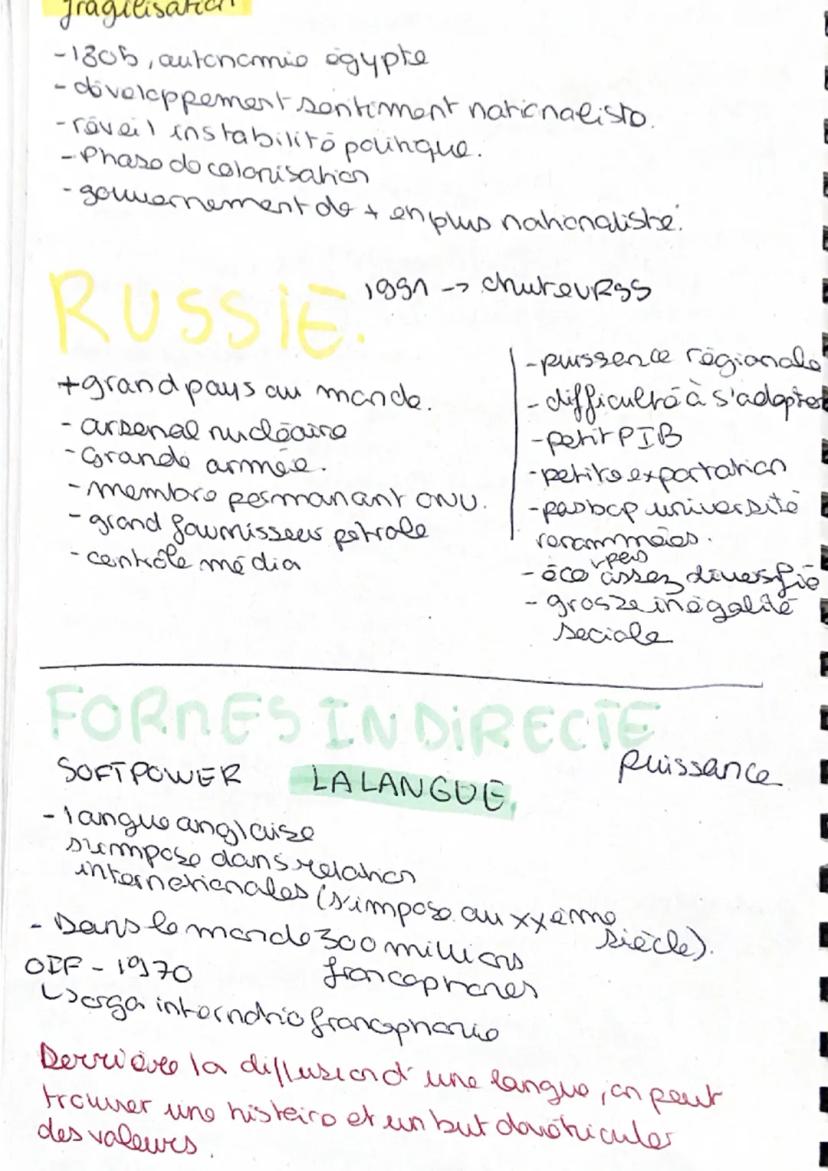 fragilisation
-1805, autonomie égypte
- développement sentiment nationaliste.
- réveil instabilité politique.
- Phase de colonisation
- gouvernement de + en plus nationaliste.
RUSSIE. 1991 -> chute URSS
+ grand pays au monde.
- arsenal nucléaire
- Grande armée.
- membre permanant ONU.
- grand fournisseur pétrole
- contrôle média
- puissence régionale
- difficulté à s'adapter
- petit PIB
- petite exportation
- pas bcp université
renommées.
- éco peu assez diversfié
- grosse inégalité
sociale
FORMES INDIRECTE
puissance
SOFT POWER LA LANGUE.
- langue anglaise
s'impose dans relation
internationales (s'impose au xxème
siècle).
- Dans le monde 300 millions
francophones
OIF - 1970
↳ orga internatio francophonie
Derrière la diffusion d'une langue, on peut
trouver une histoire et un but de véhiculer
des valeurs.